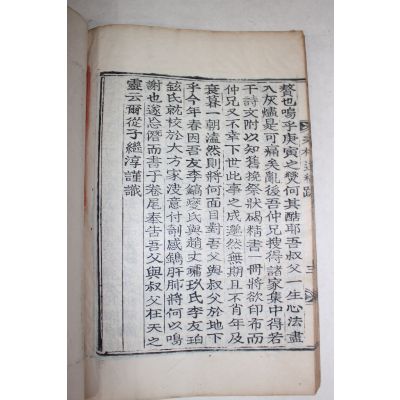 贅也嗚乎庚寅之燹何其酷耶吾叔父一生心法盡
入灰燼是可痛矣亂後吾仲兄搜得諸家集中得若
干詩文附以知舊挽祭狀碣精書一冊將欲印布而
仲兄又不幸下世此事之成邈然無期且不肖年及
衰暮一朝溘然則將何面目對吾父與叔父於地下
乎今年春因吾友李鎬燮氏與趙丈鏞玖氏李友珀
鉉氏就校於大方家淺意付剞感鏤肝肺將何以鳴
謝也遂忘僭而書于卷尾奉告吾父與叔父在天之
靈云爾從子繼淳謹識
遺稿 跋
三